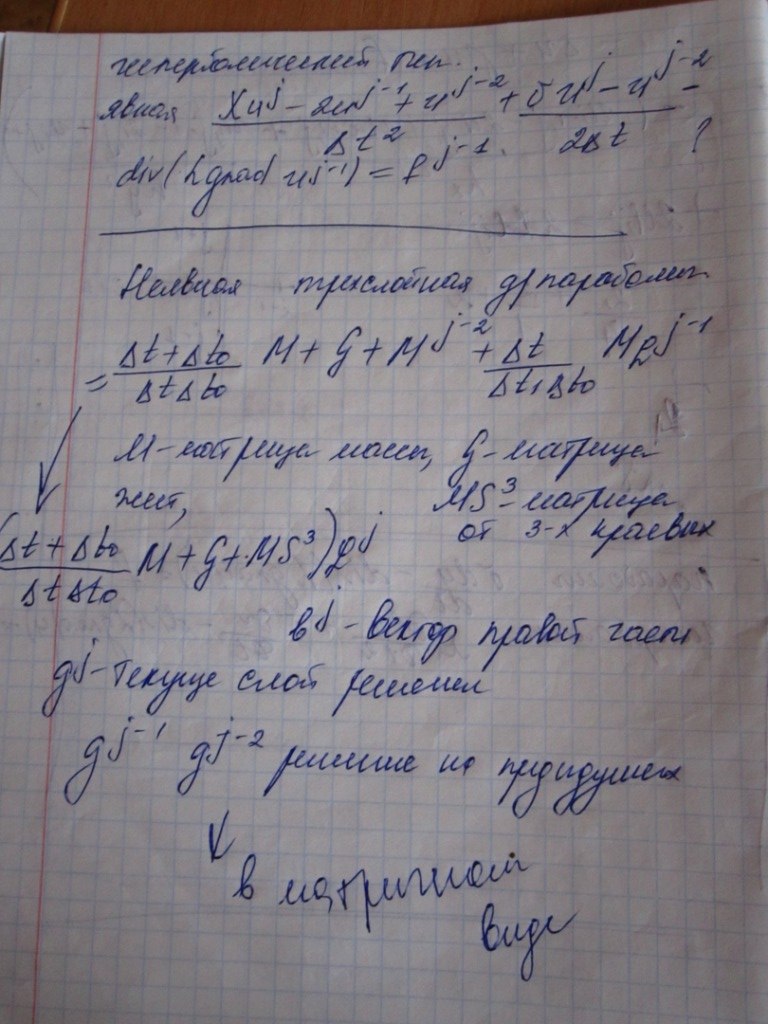 гиперболический тип.
явная χu^j - 2u^{j-1} + u^{j-2} / Δt^2 + σ u^j - u^{j-2} / 2Δt -
div(λ grad u^{j-1}) = f^{j-1} ?
Неявная трехслойная д/параболич
= Δt+Δt₀ / ΔtΔt₀ M + G + M^{j-2} + Δt / Δt₁Δt₀ M q^{j-1}
M - матрица массы, G - матрица
жест, MS^3 - матрица
от 3-х краевых
(Δt+Δt₀ / ΔtΔt₀ M + G + MS^3) q^j
b^j - вектор правой части
q^j - текуще слой решения
q^{j-1} q^{j-2} решение на предидущих
в матричном
виде